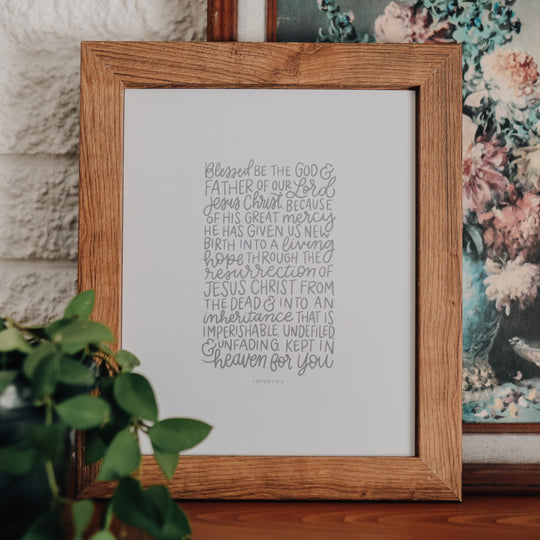 Blessed BE THE GOD &
FATHER OF OUR Lord
Jesus Christ. BECAUSE
OF HIS GREAT mercy
HE HAS GIVEN US NEW
BIRTH INTO A living
hope THROUGH THE
resurrection OF
JESUS CHRIST FROM
THE DEAD & INTO AN
inheritance THAT IS
IMPERISHABLE, UNDEFILED
& UNFADING, KEPT IN
heaven for you
1 PETER 1:3-4